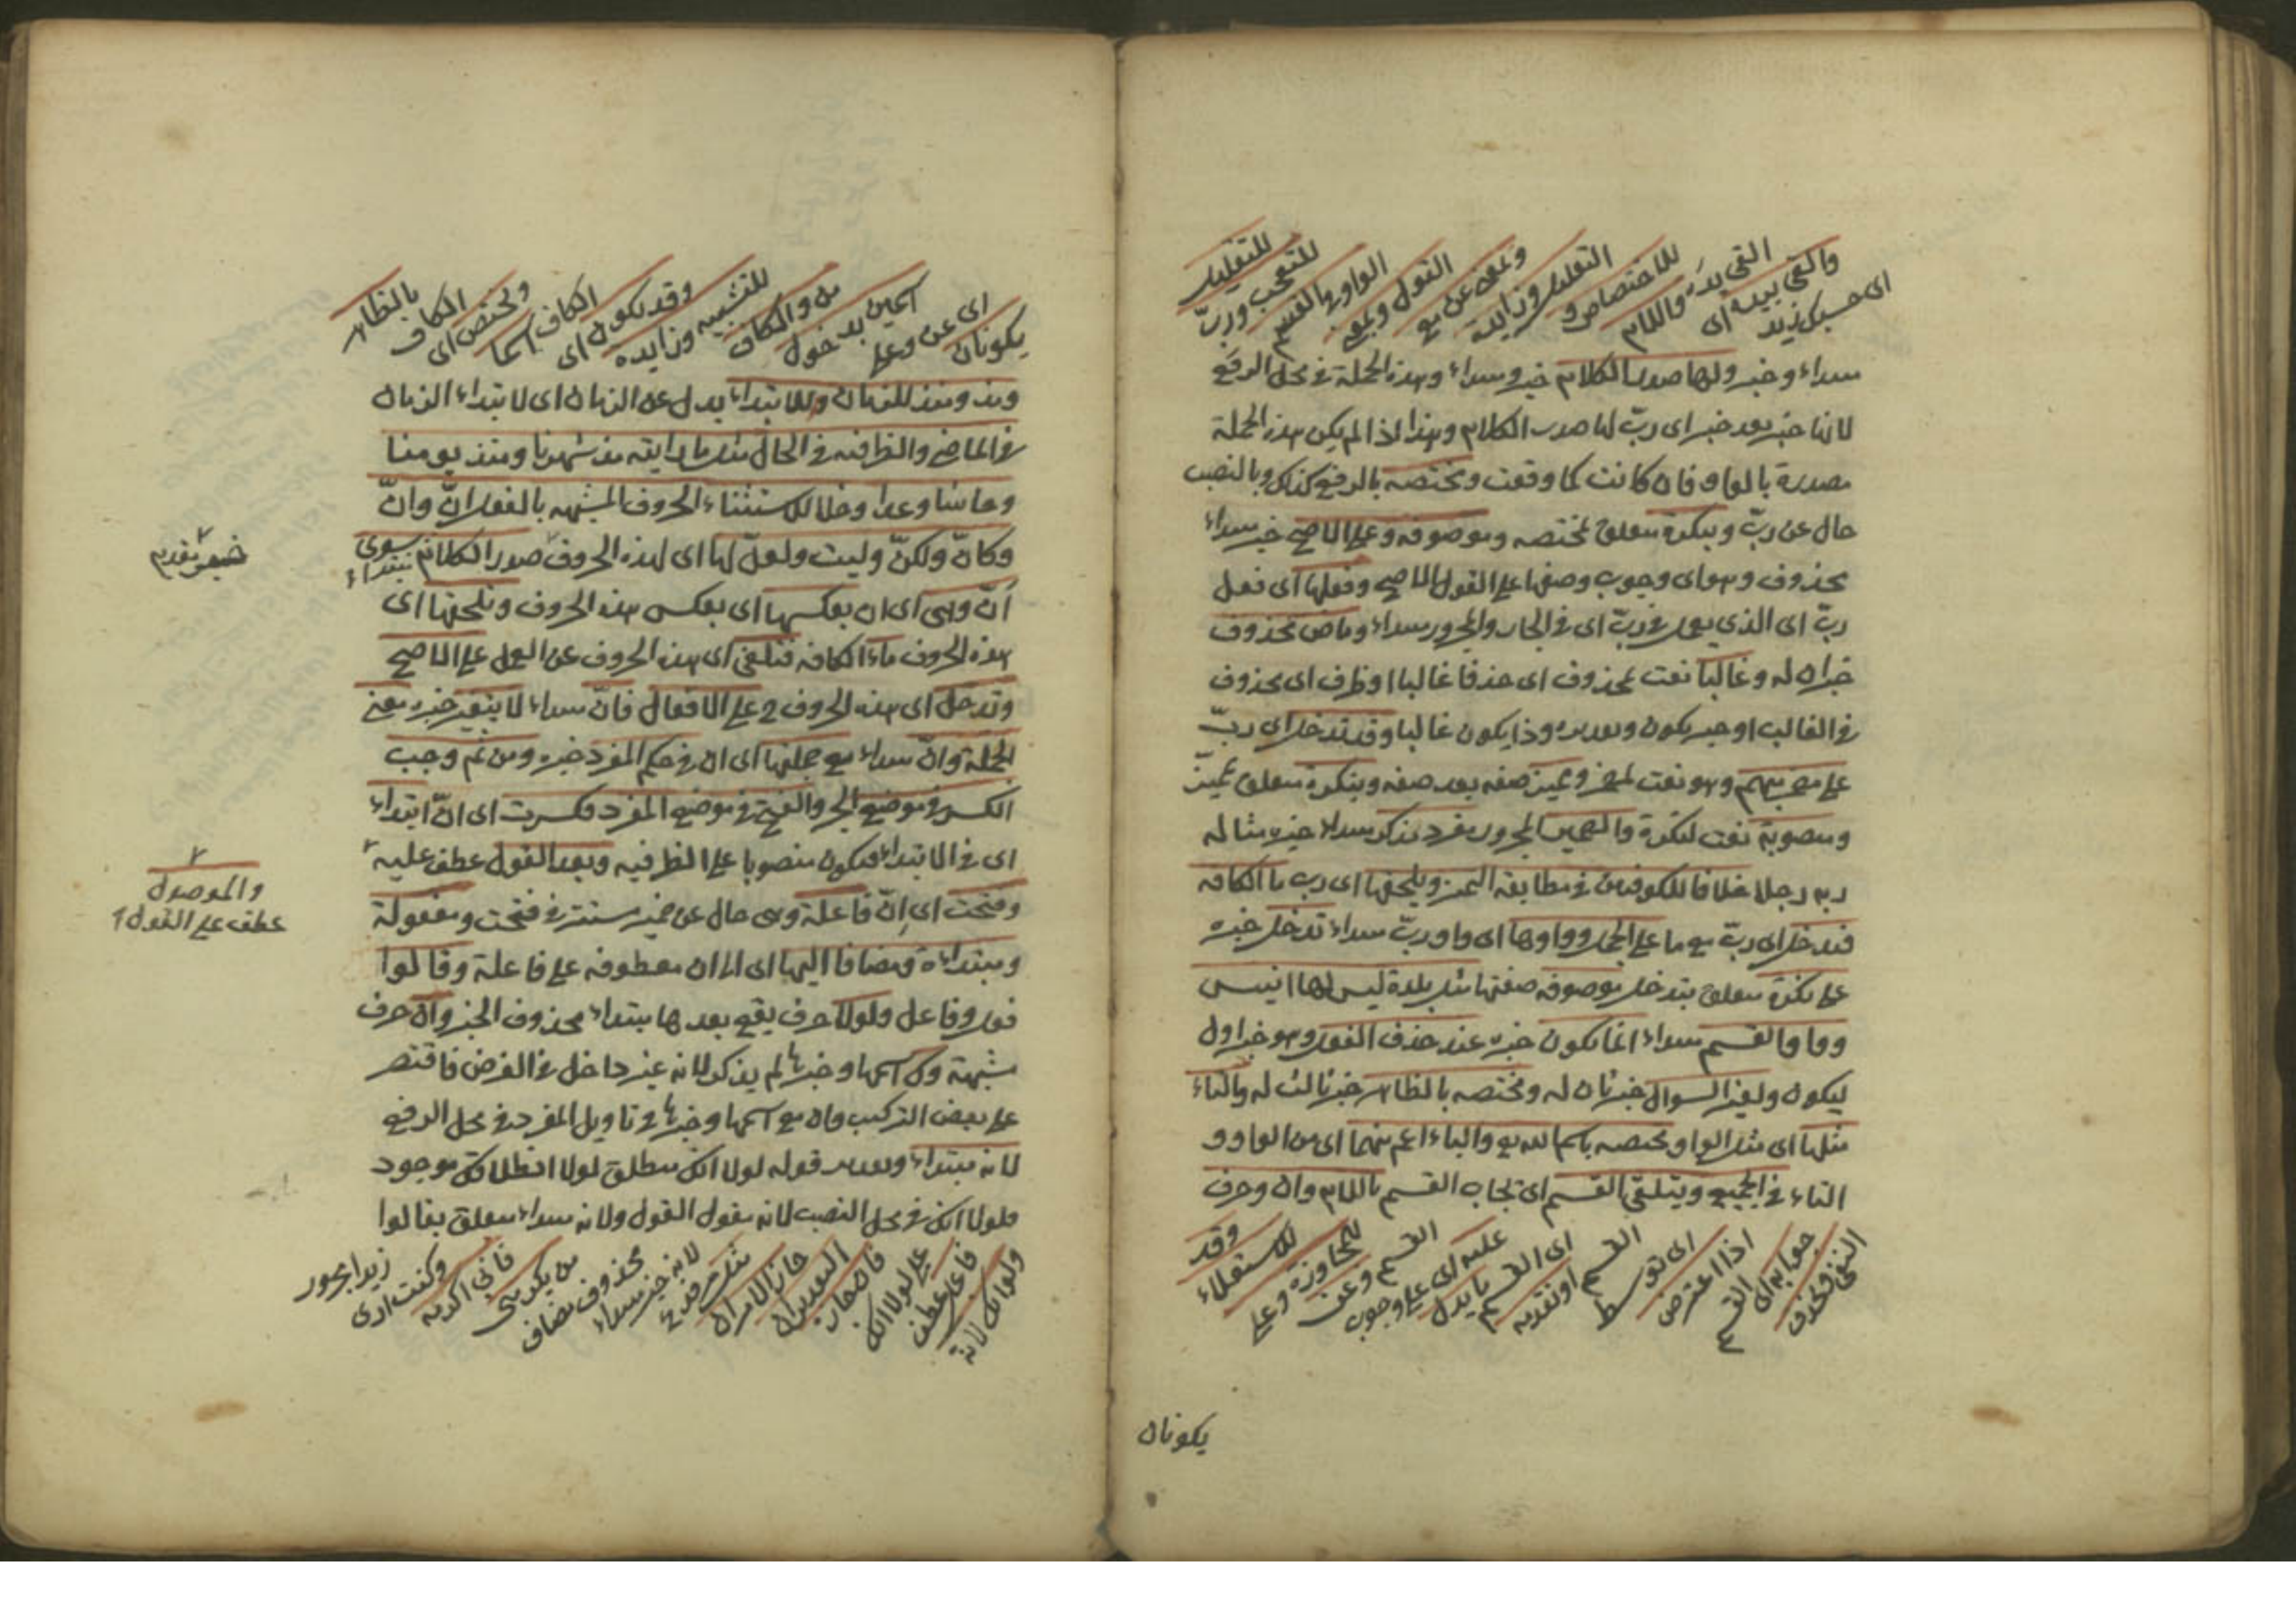 والقى بيده اى
القى يده واللام
للاختصاص و
التعليل وزايدة
وبمعنى عن مع
القول وبمعنى
الواو في القسم
للتعجب ورب
للتقليل
اى حسبك زيد
مبتداء وخبر ولها صدر الكلام خبر ومبتداء وهذه الجملة في محل الرفع
لانها خبر بعد خبر اى ربّ لها صدر الكلام وهذا اذا لم يكن هذه الجملة
مصدرة بالواو فان كانت كما وقعت ومختصه بالرفع كذلك وبالنصب
حال عن ربّ وبنكرة متعلق بمختصه وموصوفه وعلى الاصح خبر مبتداء
محذوف وهو اى وجوب وصفها على القول الاصح وفعلها اى فعل
ربّ اى الذي يعمل في ربّ اى في الجار والمجرور مبتداء وماض محذوف
خبران له وغالبا نعت لمحذوف اى حذفا غالبا او ظرف اى محذوف
في الغالب او خبر يكون وتقديره وذا يكون غالبا وقد تدخل اى ربّ
على مضمر مبهم وهو نعت لمضمر ومميز صفه بعد صفه وبنكرة متعلق بمميز
ومنصوبة نعت لنكرة والضمير المجرور مفرد مذكر مبتداء خبره مثاله
ربه رجلا خلافا للكوفيين في مطابقة التميز ويلحقها اى رب ما الكافه
فتدخل اى ربّ مع ما على الجمل وواوها اى واو ربّ مبتداء تدخل خبره
على نكرة متعلق بتدخل موصوفه صفتها مثل بلدة ليس لها انيس
وواو القسم مبتداء انما تكون خبره عند حذف الفعل وهو خبر اول
ليكون ولغير السوال خبر ثان له ومختصه بالظاهر خبر ثالث له والتاء
مثلها اى مثل الواو مختصه باسم الله مع والباء اعم منهما اى من الواو و
التاء في الجميع ويتلقى القسم اى يجاب القسم باللام وان وحرف
النفي ويحذف
جوابه اى القسم
اذا اعترض
اى توسط
القسم او تقدمه
اى القسم ما يدل
عليه اى على وجوب
القسم وعن
للمجاوزة وعلى
للاستعلاء
وقد
يكونان
يكونان
اى عن وعلى
اسمين بدخول
من والكاف
للتشبيه وزايده
وقد يكون اى
الكاف اسما
ويختص اى
الكاف
بالظاهر
ومذ ومنذ للزمان وللابتداء بدل عن الزمان اى لابتداء الزمان
في الماضي والظرافيه في الحال مثل ما رايته مذ شهرنا ومنذ يومنا
وحاشا وعدا وخلا للاستثناء الحروف المشبهه بالفعل انّ وانّ
وكانّ ولكنّ وليت ولعلّ لها اى لهذه الحروف صدر الكلام سوى مبتداء
خبر مقدم
اَنّ وهى اى ان بعكسها اى بعكس هذه الحروف وتلحقها اى
هذه الحروف ماء الكافه فتلغى اى هذه الحروف عن العمل على الاصح
وتدخل اى هذه الحروف ح على الافعال فانّ مبتداء لا يتغير خبره معنى
الجملة وانّ مبتداء مع جملتها اى ان في حكم المفرد خبره ومن ثم وجب
الكسر في موضع الجمل والفتح في موضع المفرد فكسرت اى انّ ابتداء
اى في الابتداء فيكون منصوبا على الظرفيه وبعد القول عطف عليه
والموصول
عطف على القول
وفتحت اى اِنّ فاعلة وهى حال عن ضمير مستتر في فتحت ومفعولة
ومبتداءة ومضافا اليها اى الى ان معطوفه على فاعلة وقالوا
فعل وفاعل ولولا حرف يقع بعدها مبتداء محذوف الخبر وان حرف
مشبهة وك اسمها وخبرها لم يذكر لانه غير داخل في الغرض فاقتصر
على بعض التركيب وان مع اسمها وخبرها في تاويل المفرد في محل الرفع
لانه مبتداء وتقدير قوله لولا انك منطلق لولا انطلاقك موجود
فلولا انك في محل النصب لانه مقول القول ولانه مبتداء متعلق بقالوا
ولو انك لانه
فاعل عطف
على لولا انك
فان جاز
التقديران
جاز الامران
مثل مرفوع
لانه خبر مبتداء
محذوف مضاف
من يكرمنى
فانى اكرمه
وكنت ارى
زيدا مجرور